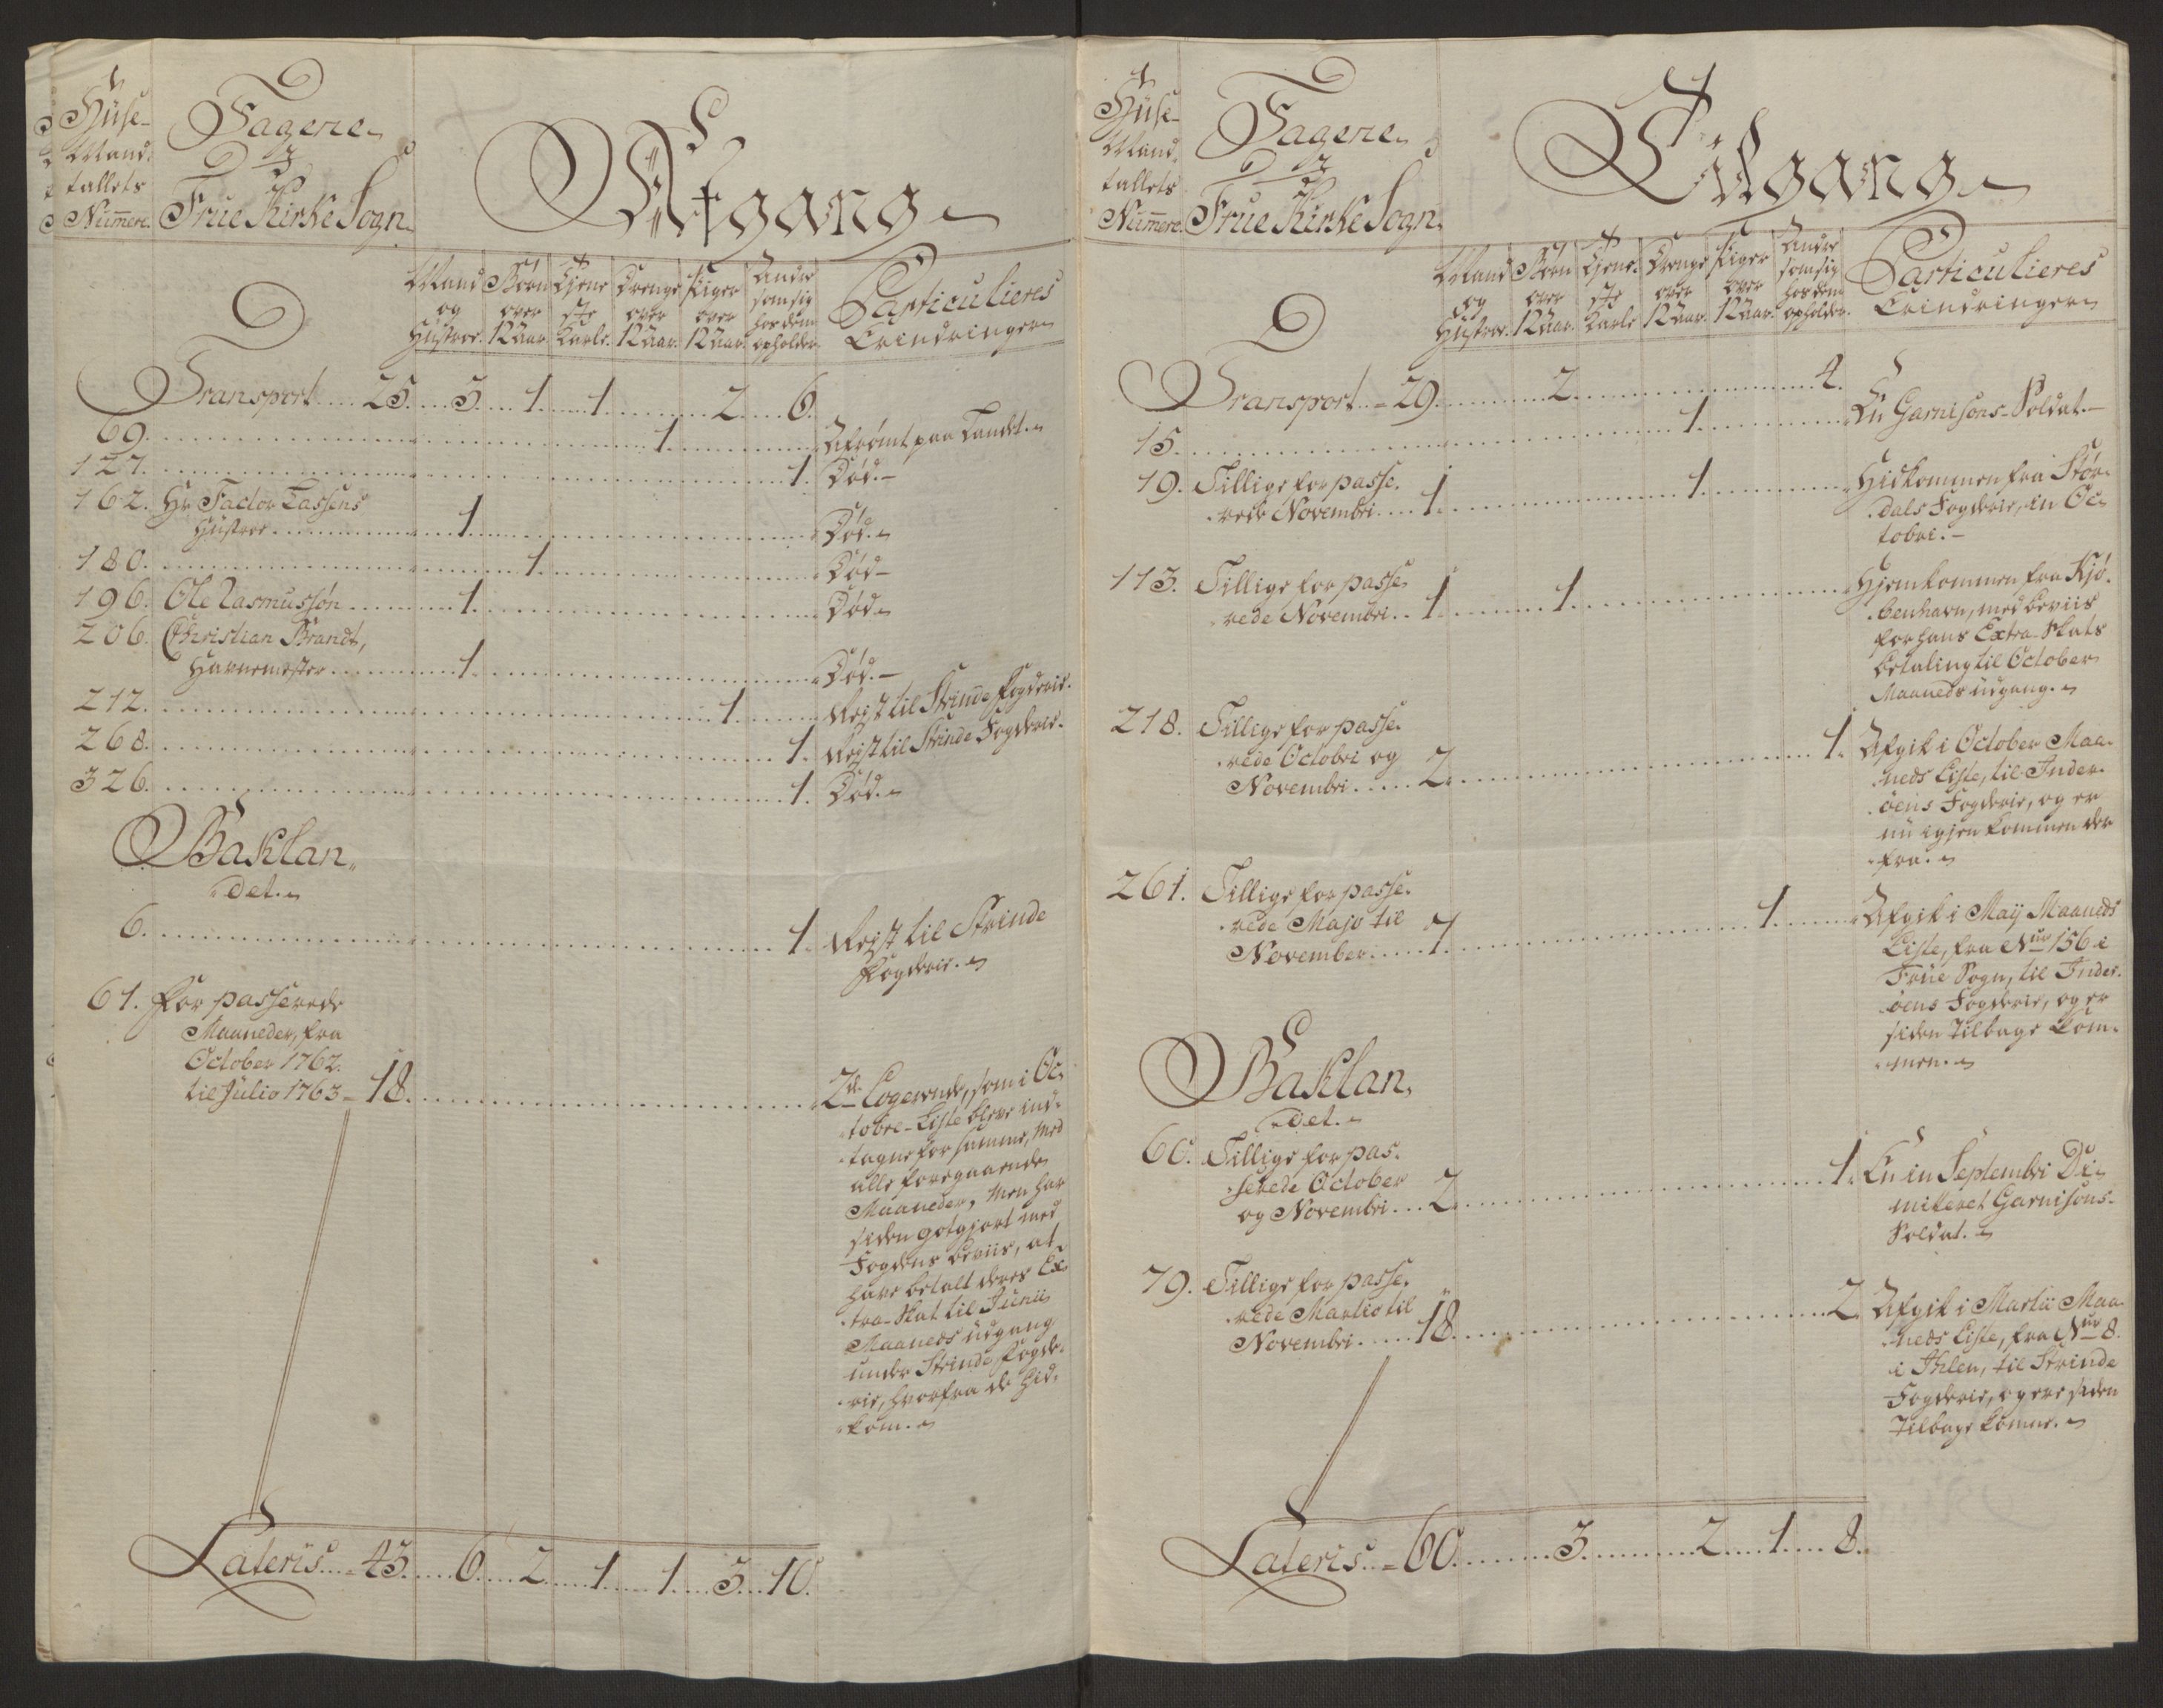 Huse-
Mand-
tallets
Nummere.
Tagene
i
Frue Kirke Sogn.
Afgang
Mand og Hustroe.
Børn over 12 Aar.
Tjene ste Karle.
Drenge over 12 Aar.
Piger over 12 Aar.
Andre som sig hos dem opholder.
Particulieres Erindringer
Transport 25. 3. 1. 1. 2. 6.
69. 1. paa Landet.
127. 1. Død.
162. Hr Factor Tassens
Hustroe 1. Død.
180. 1. Død
196. Ole Rasmussøn 1. Død
206. Christian Brandt,
Havnemester 1. Død.
212. 1. Rejst til Strinde Fogderie.
268. 1. Rejst til Strinde Fogderie.
326. 1. Død.
Baklan
det.
6. 1. Rejst til Strinde
Fogderie.
61. For passerede
Maaneder, fra
October 1762.
til Julio 1763 18. 2de Logerende, som i Oc-
tobre-Liste bleve ind-
tagne for samme, med
alle foregaaende
Maaneder, men har
siden gotgjort med
Fogdens beviis, at
have betalt deres Ex-
tra-Skat til Junii
Maaneds udgang
under Strinde Fogde-
rie, hvorfra de hid-
kom.
Lateris 43. 6. 2. 1. 1. 3. 10.
Huse-
Mand-
tallets
Nummere.
Tagene
i
Frue Kirke Sogn.
Tilgang
Mand og Hustroe.
Børn over 12 Aar.
Tjene- ste Karle
Drenge over 12 Aar.
Piger over 12 Aar.
Andre som sig hos dem opholder.
Particulieres Erindringer
Transport 29. 2. 4.
15. 1. En Garnisons-Soldat.
19. Tillige for passe-
rede Novembri 1. 1. Hidkommen fra Stør-
dals Fogderie, in Oc-
tobri.
113. Tillige for passe-
rede Novembri 1. 1. Hjemkommen fra Kjø-
benhavn, med beviis
for hans Extra-Skats
betaling til October
Maaneds udgang.
218. Tillige for passe-
rede Octobri og
Novembri 2. 1. Afgik i October Maa-
neds Liste, til Inder-
øens Fogderie, og er
nu igjen kommen der
fra.
261. Tillige for passe-
rede Majo til
November 7. 1. Afgik i Maij Maaneds
Liste, fra Nur 156 i
Frue Sogn, til Inder-
øens Fogderie, og er
siden tilbage kom-
men.
Baklan
det.
60. Tillige for pas-
serede October
og Novembri 2. 1. En in Septembri Di-
mitteret Garnisons-
Soldat.
79. Tillige for passe-
rede Martio til
Novembri 18. 2. Afgik i Martii Maa-
neds Liste, fra Nur 8.
i Ihlen, til Strinde
Fogderie, og ere siden
tilbage komne.
Lateris 60. 3. 2. 1. 8.